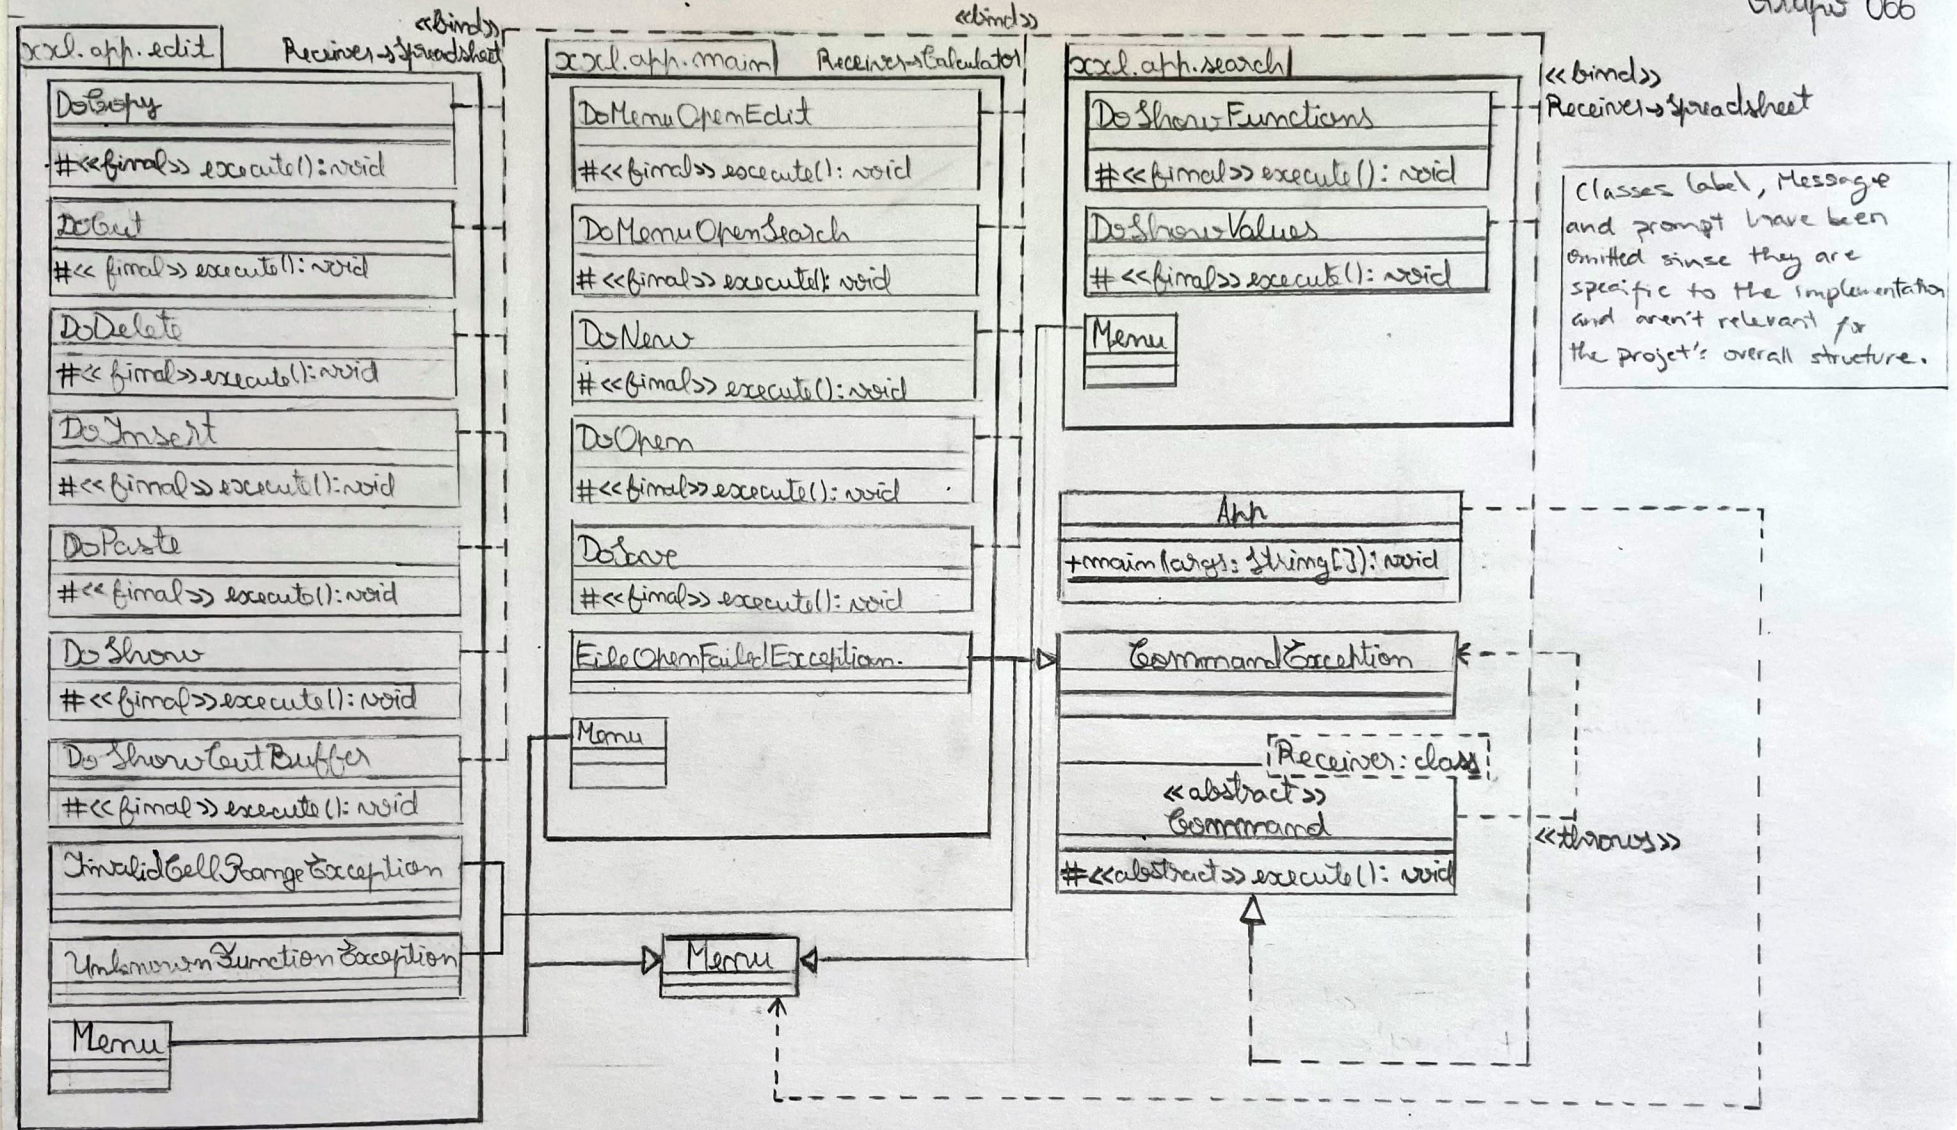 Grupo 066
xxl.app.edit
<<bind>>
Receiver→Spreadsheet
DoCopy
#<<final>> execute():void
DoCut
#<< final>> execute():void
DoDelete
#<< final>> execute():void
DoInsert
#<<final>> execute():void
DoPaste
#<<final>> execute():void
DoShow
#<<final>> execute():void
DoShowCutBuffer
#<<final>> execute(): void
InvalidCellRangeException
UnknownFunctionException
Menu
xxl.app.main
<<bind>>
Receiver→Calculator
DoMenuOpenEdit
#<<final>> execute(): void
DoMenuOpenSearch
#<<final>> execute(): void
DoNew
#<<final>> execute(): void
DoOpen
#<<final>> execute(): void
DoSave
#<<final>> execute(): void
FileOpenFailedException.
Menu
Menu
xxl.app.search
<<bind>>
Receiver→Spreadsheet
DoShowFunctions
#<<final>> execute(): void
DoShowValues
#<<final>> execute(): void
Menu
Classes Label, Message
and prompt have been
omitted sinse they are
specific to the implementation
and aren't relevant for
the projet's overall structure.
App
+main(args: String[]): void
CommandException
Receiver: class
<<abstract>>
Command
#<<abstract>> execute(): void
<<throws>>